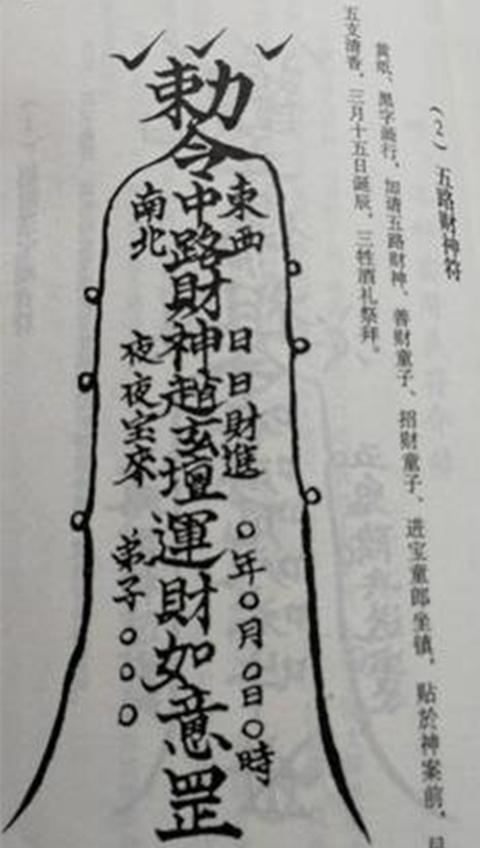 (2) 五路财神符
黄纸、黑字画行，加请五路财神、善财童子、招财童子、进宝童郎坐镇，贴於神案前，
五支清香，三月十五日诞辰，三牲酒礼祭拜。
勅令
東西
中路財神趙玄壇運財如意罡
南北
日日財進
夜夜宝來
○年○月○日○時
弟子○○○